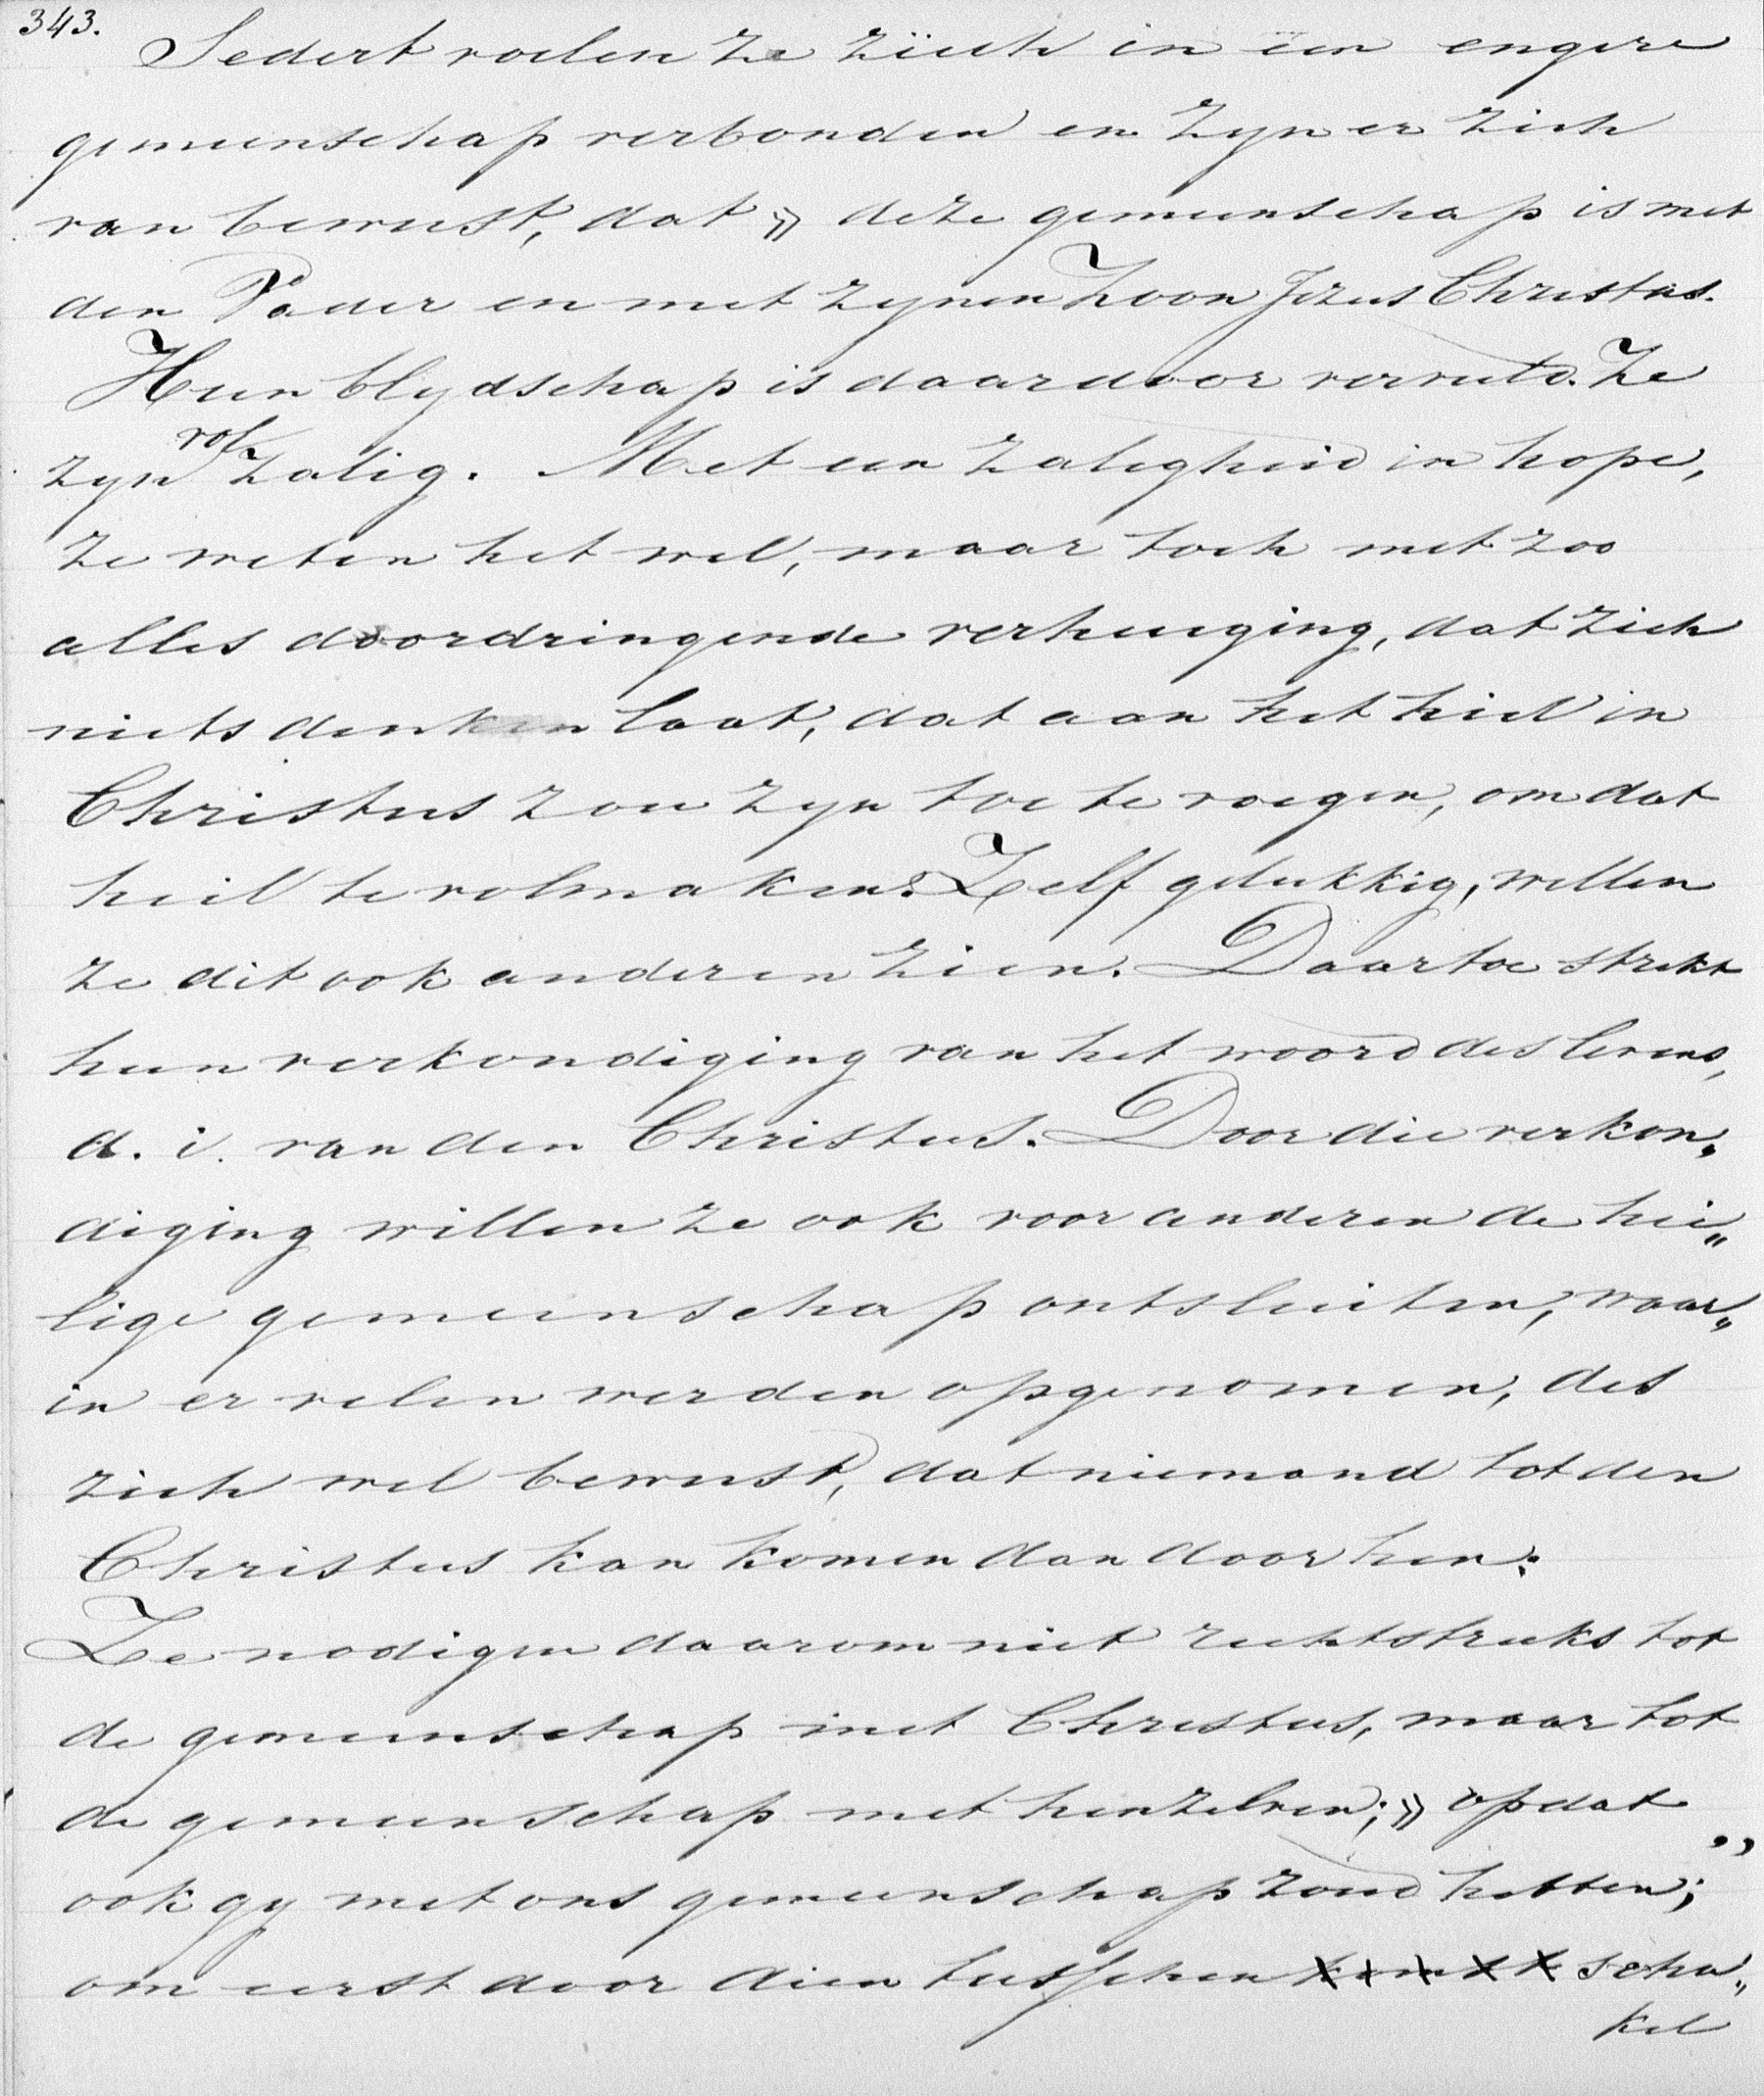 343.
Sedert voelen ze zich in een engere
gemeenschap verbonden en zyn er zich
van bewust, dat » deze gemeenschap is met
den Vader en met zynen Zoon Jezus Christus.
Hun blydschap is daardoor vervuld. Ze
zyn vol zalig. Met een zaligheid in hope,
ze weten het wel, maar toch met zoo
alles doordringende verheuging, dat zich
niets denken laat, dat aan het heil in
Christus zou zyn toe te voegen, om dat
heil te volmaken. Zelf gelukkig, willen
ze dit ook anderen zien. Daartoe strekt
hun verkondiging van het woord des levens,
d. i. van den Christus. Door die verkon„
diging willen ze ook voor anderen de hei„
lige gemeenschap ontsluiten, waar„
in er velen werden opgenomen, des
zich wel bewust, dat niemand tot den
Christus kan komen dan door hen.
Ze nodigen daarom niet rechtstreeks tot
de gemeenschap met Christus, maar tot
de gemeenschap met henzelven; » opdat
ook gy met ons gemeenschap zoud hebben;”
om eerst door dien tusschen scha„
kel